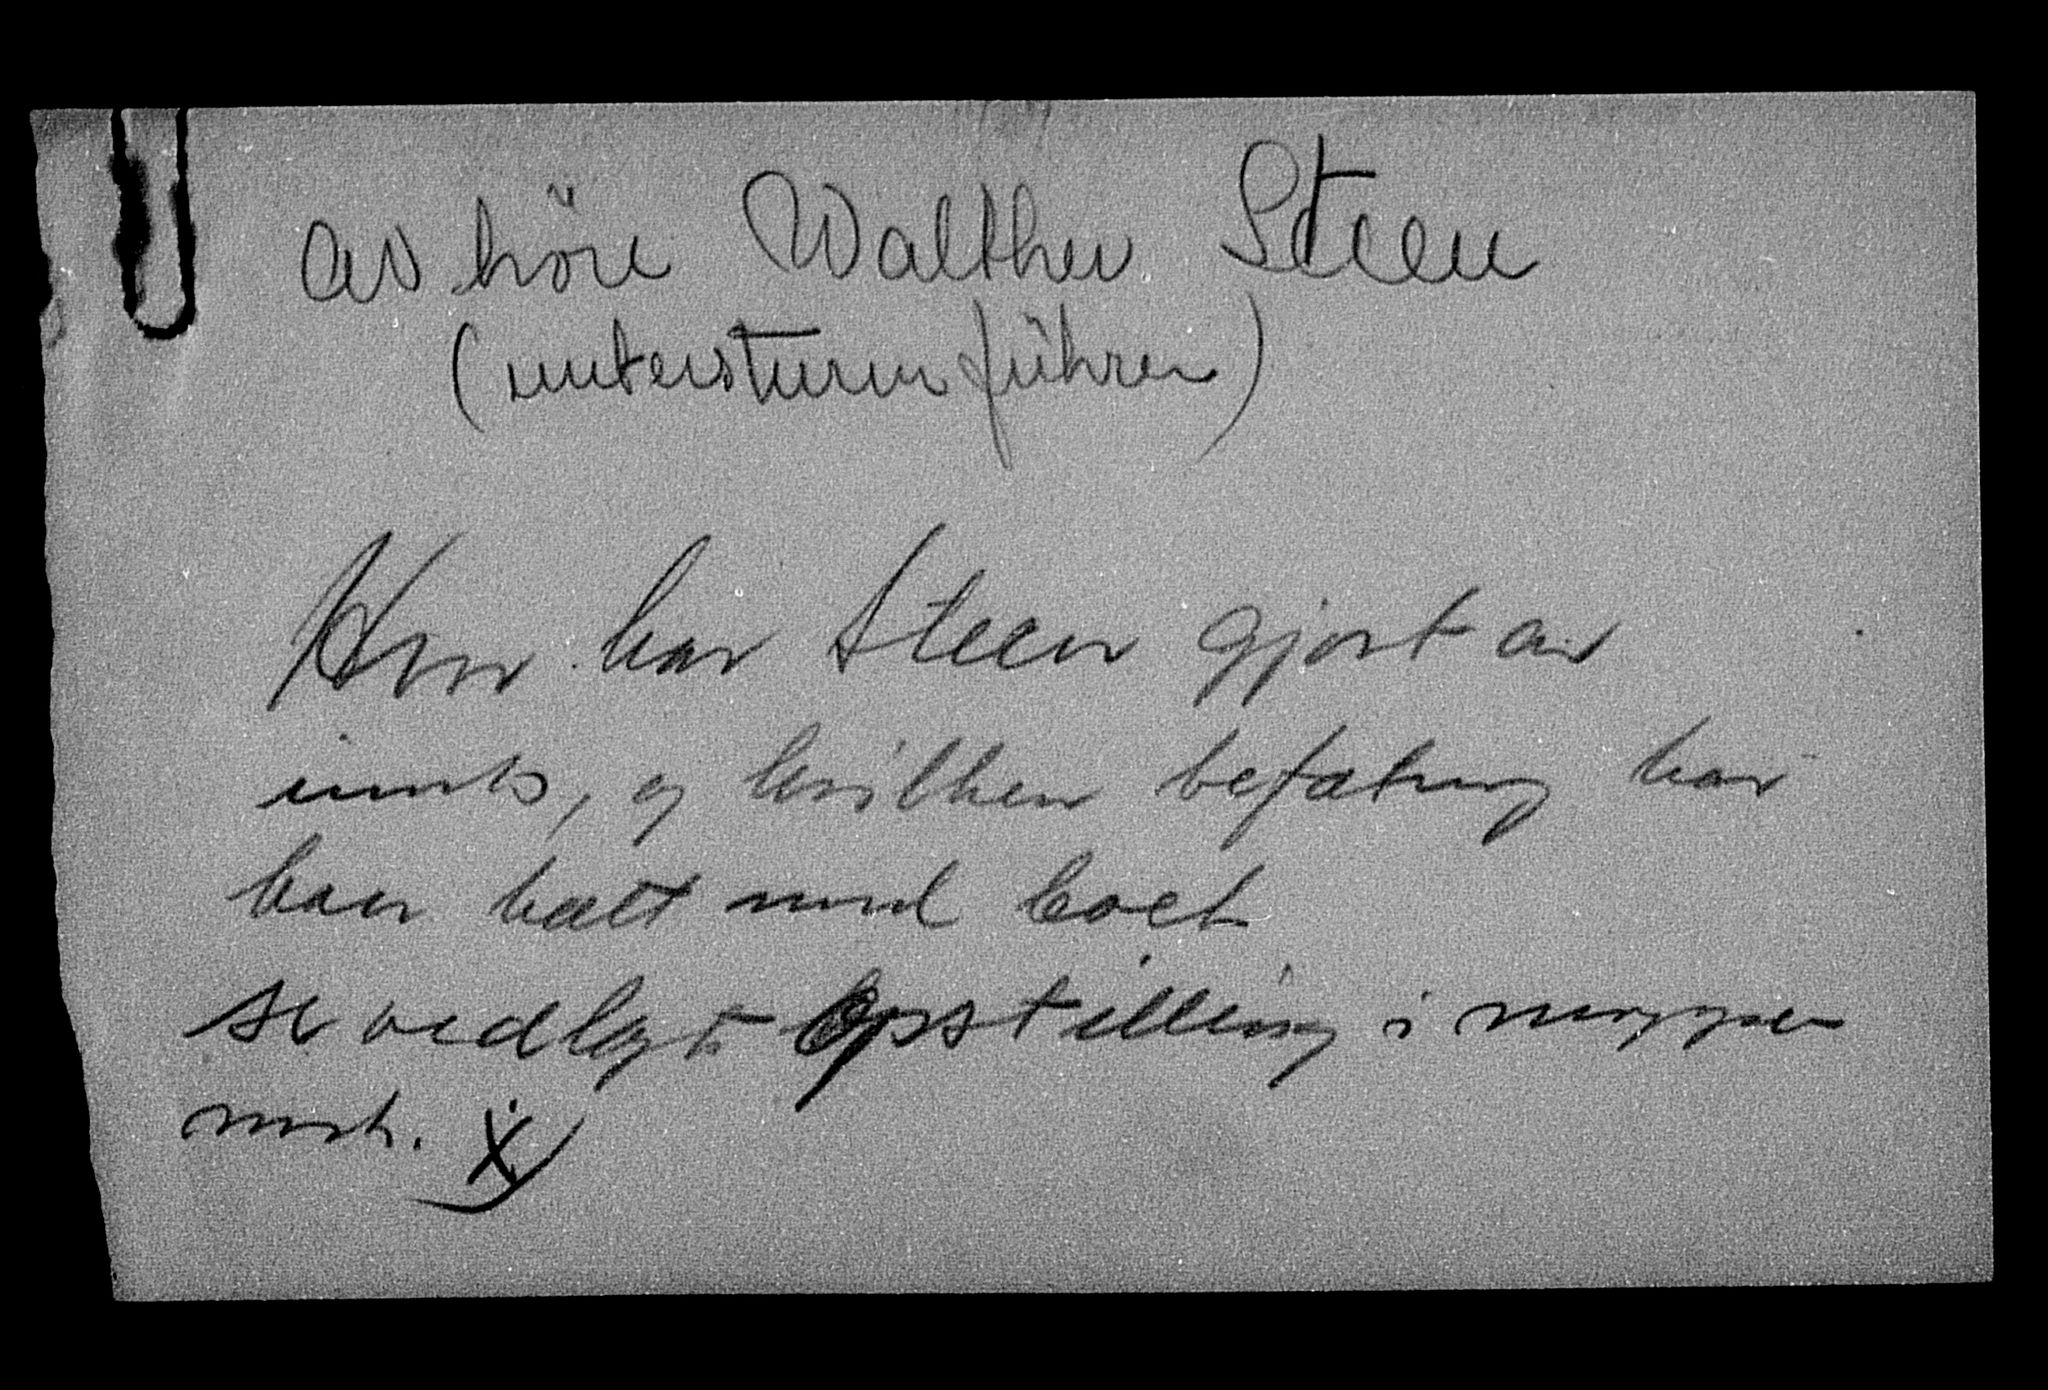 avhöre Walther Steen
(untersturmführer)
Hvor har Steen gjort av
innb, og hvilken befatning har
han hatt med boet
se vedlagt opstilling i mappen
merk. X